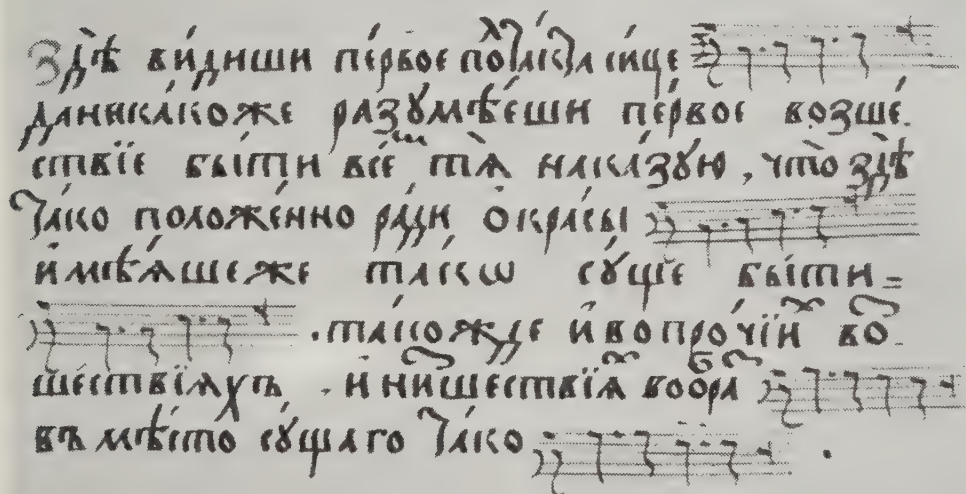 Здѣ ви́диши пе́рвое по ꙗ҆ꙗ сице
да ника́коже разꙋмѣ́еши пе́рвое возше́
ствїе бы́ти все тѧ̀ нака́зꙋю, что здѣ̀
ꙗ҆́ко положе́нно ра́ди ѻ҆кра́сы
и҆мѣ́ѧше же та́кѡ сꙋ́ще бы́ти=
. та́кожде и҆ во про́чїи во
ше́ствїѧхъ . и҆ нише́ствїѧ во ѡбра
въ мѣ́сто сꙋ́щаго ꙗ҆́ко .